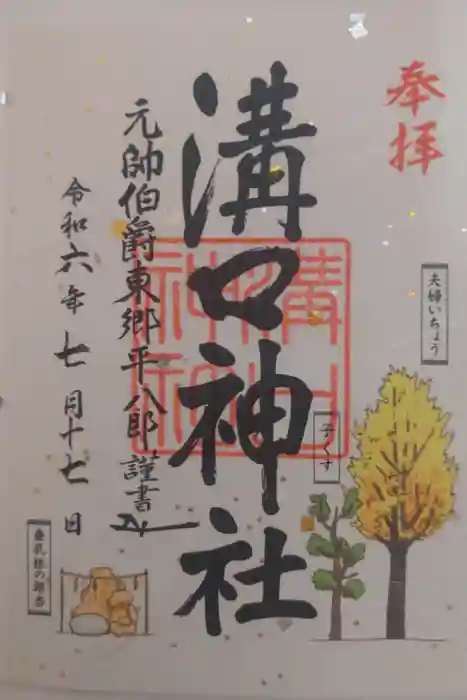 奉拝
夫婦いちょう
子くす
溝口神社
溝口神社
元帥伯爵東郷平八郎謹書
令和六年七月十七日